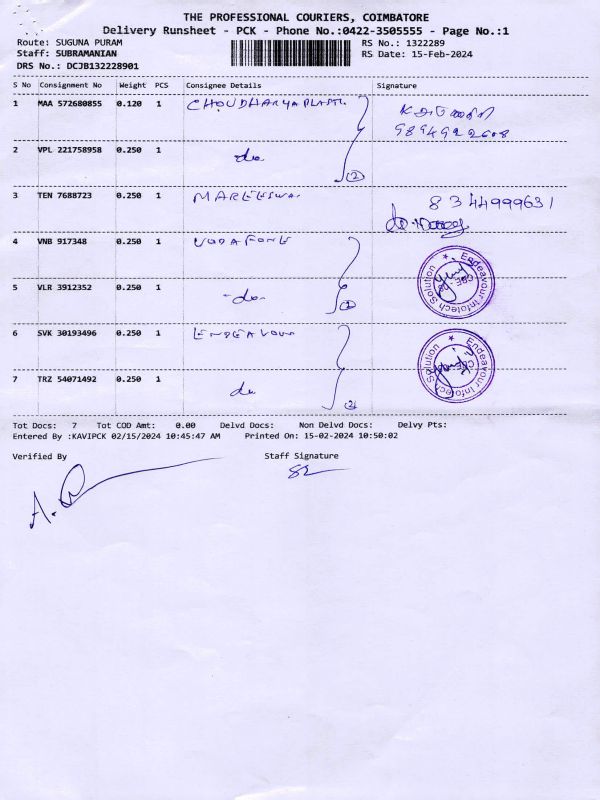 THE PROFESSIONAL COURIERS, COIMBATORE
Delivery Runsheet - PCK - Phone No.:0422-3505555 - Page No.:1
Route: SUGUNA PURAM RS No.: 1322289
Staff: SUBRAMANIAN RS Date: 15-Feb-2024
DRS No.: DCJB132228901
S No Consignment No Weight PCS Consignee Details Signature
1 MAA 572680855 0.120 1 CHOUDHARY
9894922608
2 VPL 221758958 0.250 1 do
2
3 TEN 7688723 0.250 1 MAREESWA 8344999631
4 VNB 917348 0.250 1 VODAFONE
Endeavour Infotech Solution
CBE - 08
5 VLR 3912352 0.250 1 -do-
2
6 SVK 30193496 0.250 1 ENDEAVOUR
Endeavour Infotech Solution
7 TRZ 54071492 0.250 1 do
2
Tot Docs: 7 Tot COD Amt: 0.00 Delvd Docs: Non Delvd Docs: Delvy Pts:
Entered By :KAVIPCK 02/15/2024 10:45:47 AM Printed On: 15-02-2024 10:50:02
Verified By Staff Signature